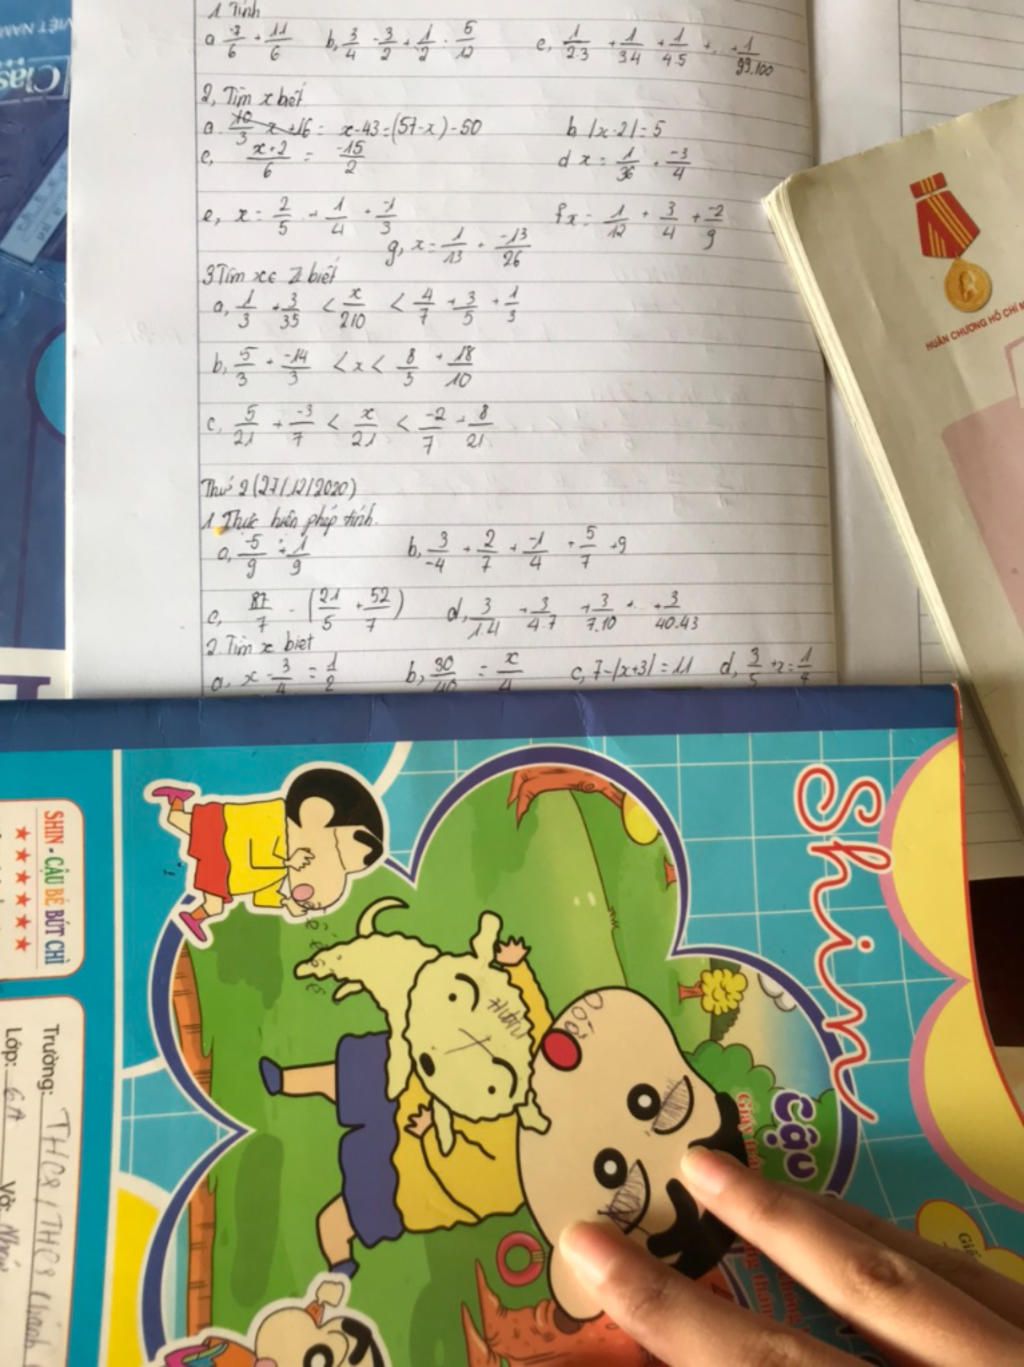 VIỆT NAM
Clas
1 Tính
a 3/6 + 11/6 b, 3/4 - 3/2 + 1/2 : 5/12 c, 1/2.3 + 1/3.4 + 1/4.5 + .. + 1/99.100
2, Tìm x biết
a. x-43=(57-x)-50 b |x-2|=5
c, x+2/6 = -15/2 d x = 1/36 . -3/4
e, x = 2/5 + 1/4 + -1/3 f x = 1/12 + 3/4 + -2/9
g, x = 1/13 + -13/26
3 Tìm x ∈ Z biết
a, 1/3 + 3/35 < x/210 < 4/7 + 3/5 + 1/3
b, 5/3 + -14/3 < x < 8/5 + 18/10
c, 5/21 + -3/7 < x/21 < -2/7 + 8/21
Thứ 2 (27/12/2020)
1 Thực hiện phép tính.
a, -5/9 + 1/9 b, 3/-4 + 2/7 + -1/4 + 5/7 + 9
c, 87/7 - (21/5 + 52/7) d, 3/1.4 + 3/4.7 + 3/7.10 + .. + 3/40.43
2 Tìm x biết
a, x - 3/4 = 1/2 b, 30/40 = x/4 c, 7-|x+3|=11 d, 3/5 + x = 1/4
HUÂN CHƯƠNG HỒ CHÍ M
Shin
Cậu
SHIN - CẬU BÉ BÚT CHÌ
Trường: THCS
Lớp: 6A Vở: